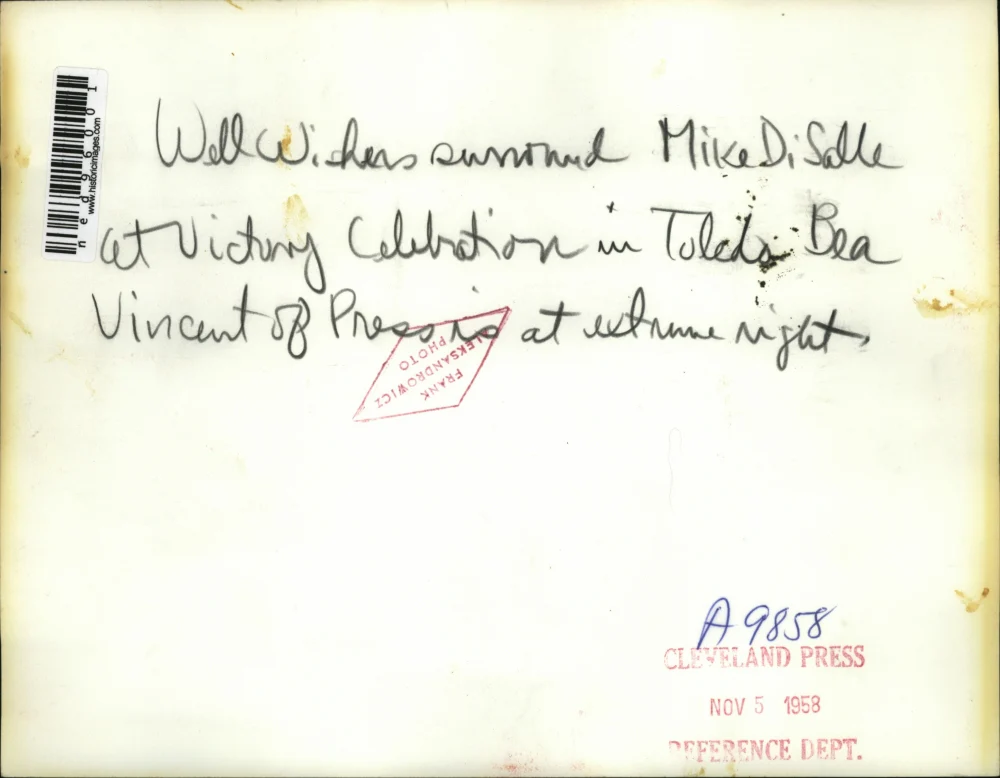 Well Wishers surround Mike DiSalle
at Victory Celebration in Toledo Bea
Vincent of Press is at extreme right.
FRANK
ALEKSANDROWICZ
PHOTO
A9858
CLEVELAND PRESS
NOV 5 1958
REFERENCE DEPT.
www.historicimages.com
ned96001